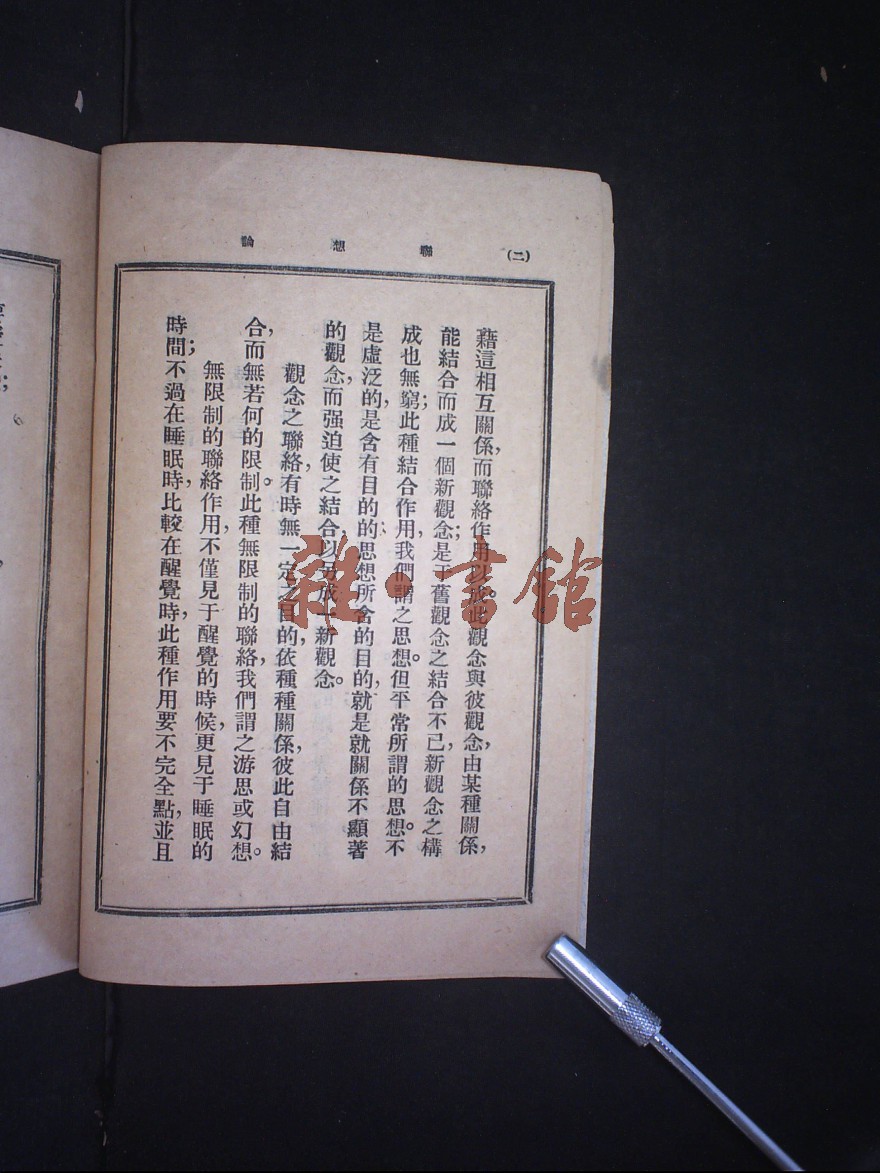 (二) 聯想論
藉這相互關係,而聯絡作用以成。此觀念與彼觀念,由某種關係,
能結合而成一個新觀念;是于舊觀念之結合不已,新觀念之構
成也無窮;此種結合作用,我們謂之思想。但平常所謂的思想,不
是虛泛的,是含有目的的;思想所含的目的,就是就關係不顯著
的觀念,而强迫使之結合,以另成一新觀念。
觀念之聯絡,有時無一定之目的,依種種關係,彼此自由結
合,而無若何的限制。此種無限制的聯絡,我們謂之游思或幻想。
無限制的聯絡作用,不僅見于醒覺的時候,更見于睡眠的
時間;不過在睡眠時,比較在醒覺時,此種作用要不完全點,並且
雜·書館